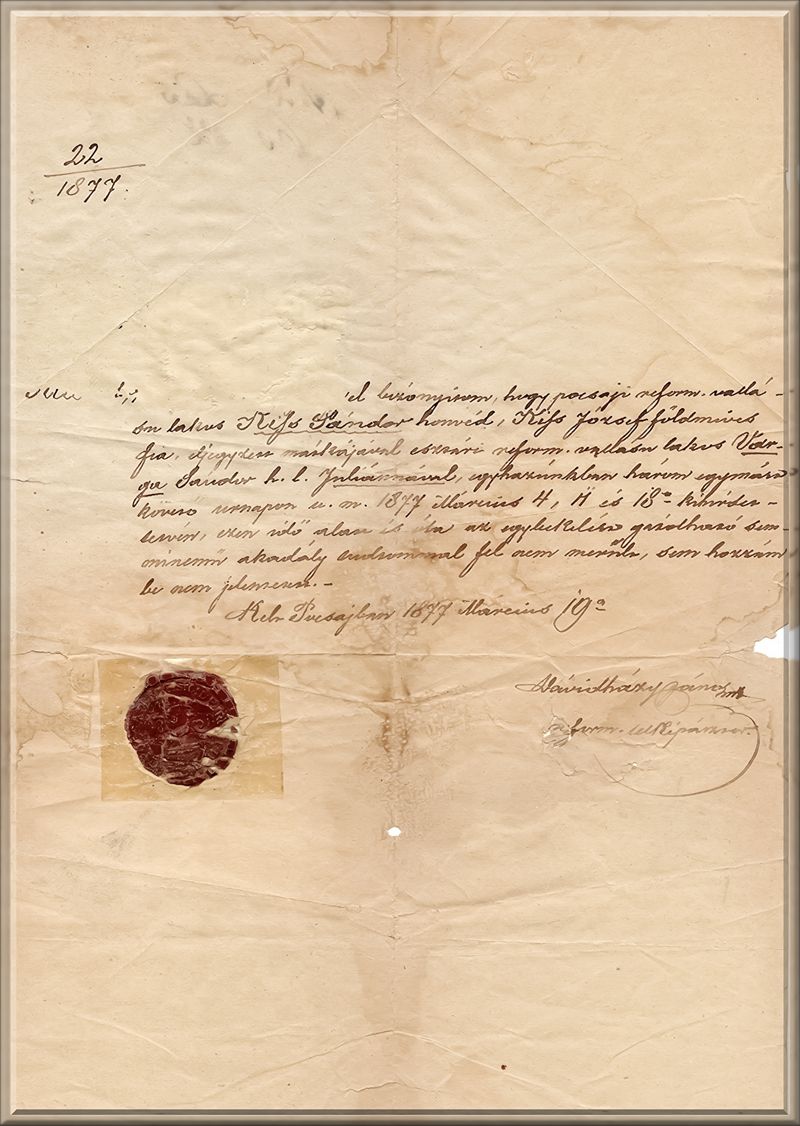 22
1877.
'el bizonyitom, hogy pocsaji reform. vallá-
su lakos Kiss Sándor honvéd, Kiss József földmíves
fia, eljegyzett mátkájával esztári reform. vallásu lakos Var-
ga Sandor h. l. Juliánnával, egyházunkban három egymást
követő urnapon u. m. 1877 Március 4, 11 és 18án kihirdet-
tetvén, ezen idő alatt és óta az egybekelést gátolható sem-
minemű akadály tudtommal fel nem merült, sem hozzám
be nem jelentetett.-
Kelt Pocsajban 1877 Március 19én
Dávidházy János mk
reform. lelkipásztor.